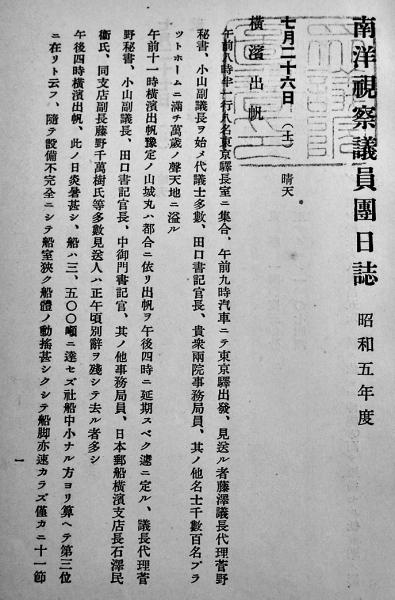 南洋視察議員團日誌 昭和五年度
七月二十六日 (土) 晴天
橫濱出帆
午前八時半一行八名東京驛長室ニ集合、午前九時汽車ニテ東京驛出發、見送ル者藤澤議長代理菅野
秘書、小山副議長ヲ始メ代議士多數、田口書記官長、貴衆兩院事務局員、其ノ他名士千數百名プラ
ットホームニ滿チ萬歳ノ聲天地ニ溢ル
午前十一時橫濱出帆豫定ノ山城丸ハ都合ニ依リ出帆ヲ午後四時ニ延期スベク遽ニ定ル、議長代理菅
野秘書、小山副議長、田口書記官長、中御門書記官、其ノ他事務局員、日本郵船橫濱支店長石澤民
衞氏、同支店副長藤野千萬樹氏等多數見送人ハ正午頃別辭ヲ殘シテ去ル者多シ
午後四時橫濱出帆、此ノ日炎暑甚シ、船ハ三、五〇〇噸ニ達セズ社船中小ナル方ヨリ算ヘテ第三位
ニ在リト云フ、隨テ設備不完全ニシテ船室狹ク船體ノ動搖甚シクシテ船脚亦速カラズ僅カニ十一節
一